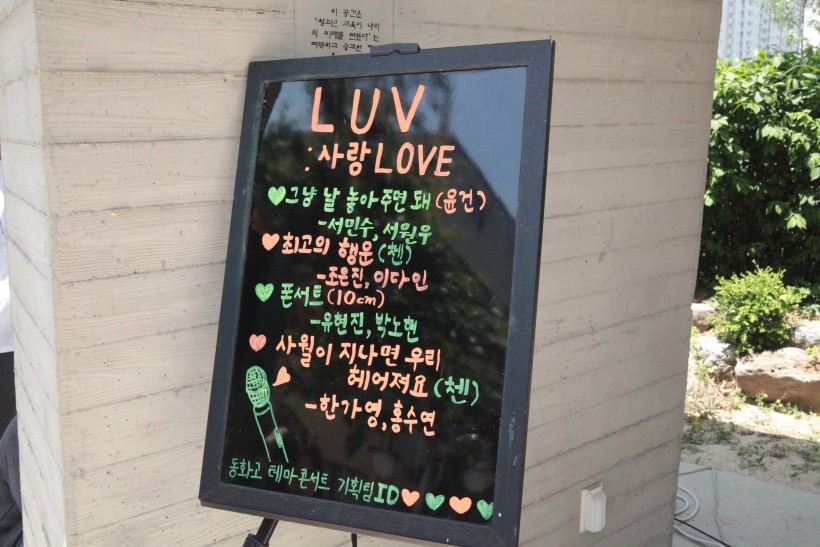 이 공간은
LUV
:사랑 LOVE
그냥 날 놓아주면 돼 (윤건)
-서민수, 서원우
최고의 행운 (첸)
-조은진, 이다인
폰서트 (10cm)
-유현진, 박노현
사월이 지나면 우리
헤어져요 (첸)
-한가영, 홍수연
동화고 테마콘서트 기획팀 ID